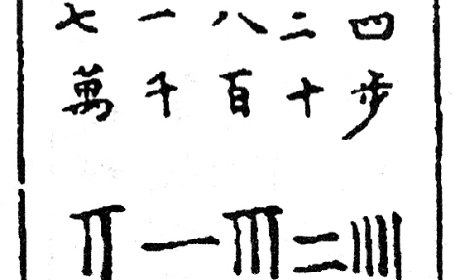 七萬
一千
八百
二十
四步
𝍯𝍠𝍰𝍡𝍬